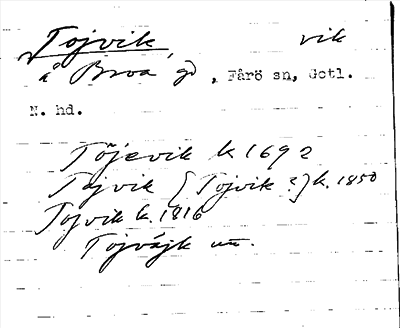 Tojvik, vik
å Broa gd, Fårö sn, Gotl.
N. hd.
Töjevik k 1692
Tojvik [Tojvik ?] k. 1850
Tojvik k. 1816
Tojväjk un.